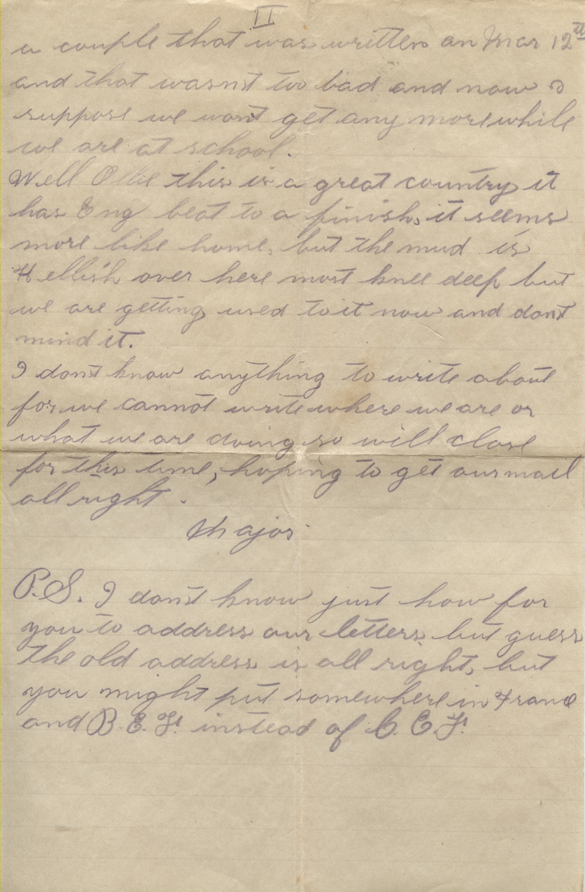 II
a couple that was written on Mar 12th
and that wasnt too bad and now I
suppose we wont get any more while
we are at school.
Well Ollie this is a great country it
has Eng beat to a finish, it seems
more like home, but the mud is
Hellish over here most knee deep but
we are getting used to it now and dont
mind it.
I dont know anything to write about
for we cannot write where we are or
what we are doing so will close
for this time, hoping to get our mail
all right.
Major.
P.S. I dont know just how for
you to address our letters but guess
the old address is all right, but
you might put somewhere in France
and B.E.F. instead of C.E.F.